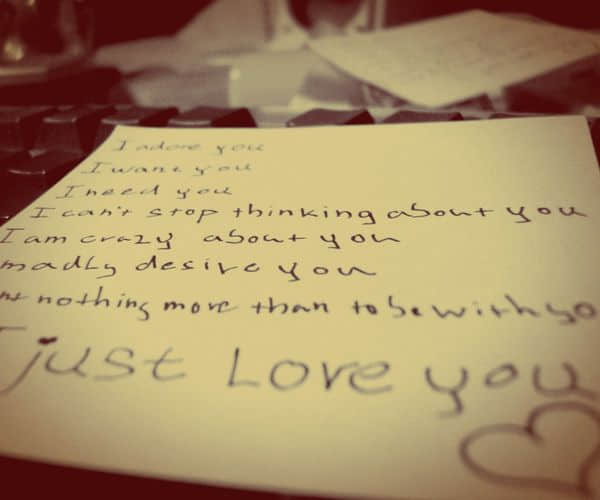 I adore you
I want you
I need you
I can't stop thinking about you
I am crazy about you
madly desire you
nothing more than to be with
I just Love you